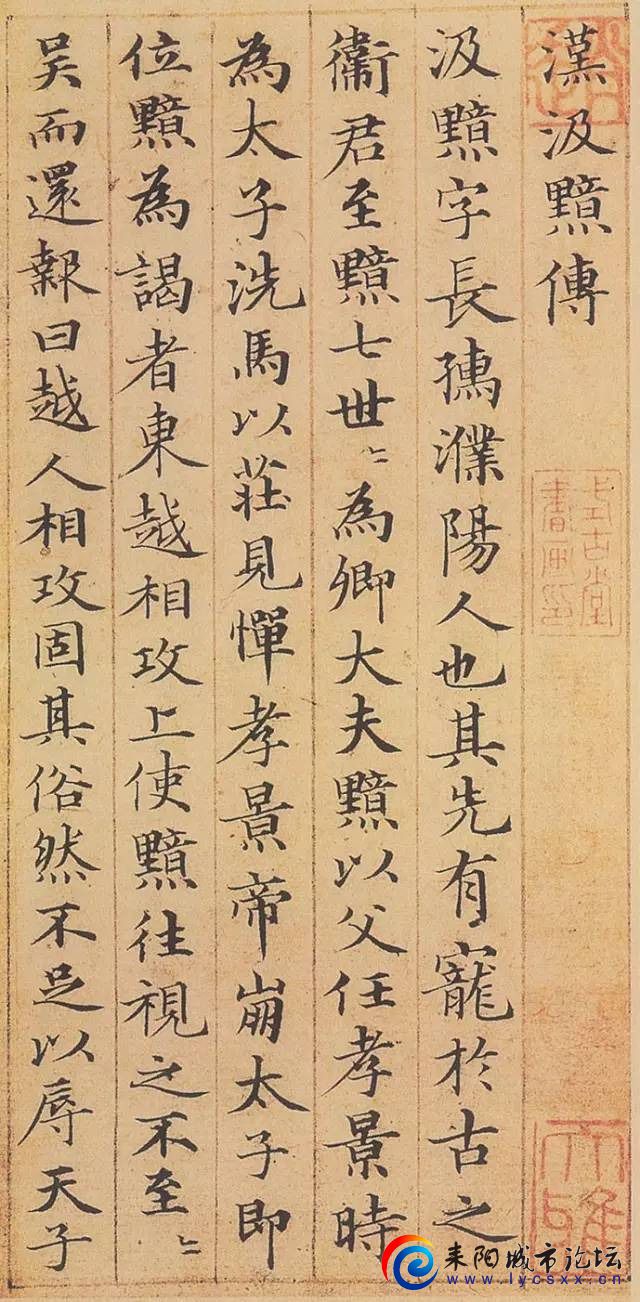 漢汲黯傳
汲黯字長孺濮陽人也其先有寵於古之
衞君至黯七世〻為卿大夫黯以父任孝景時
為太子洗馬以莊見憚孝景帝崩太子即
位黯為謁者東越相攻上使黯往視之不至〻
吳而還報曰越人相攻固其俗然不足以辱天子
耒阳城市论坛
www.lycsxx.cn